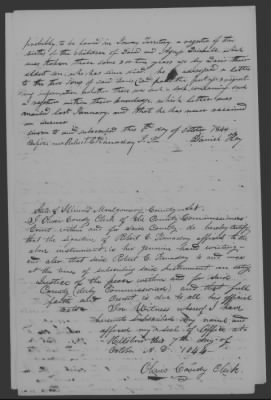 probably to be found in Iowa Territory a register of the
births of the children of David and Driskill which
was taken there some or ten years ago by David their
oldest son, who has since died. he has addressed a letter
to the two sons of said David last past
any information whether there was such a
a register within their knowledge, which letter was
mailed last January, and that he has never received
an answer
sworn to and subscribed this day of October 1844
before me Robert C. Thumaday J. P. Ray
State of Illinois Montgomery County Sct.
I Olinus Coudy Clerk of the County Commissioners
Court within and for said County, do hereby certify
that the signature of Robert C. Thumaday affixed to the
above instrument, is his genuine hand writing—
and also that said Robert C. Thumaday is and was
at the time of subscribing said instrument an acting
Justice of the peace within and for said
County (duly Commissioned) and that full
faith and Credit is due to all his official
acts. In Witness whereof I have
hereunto subscribed my name and
affixed my seal of Office at
Hillsboro this 7th day of
October A. D. 1844
Clerk.